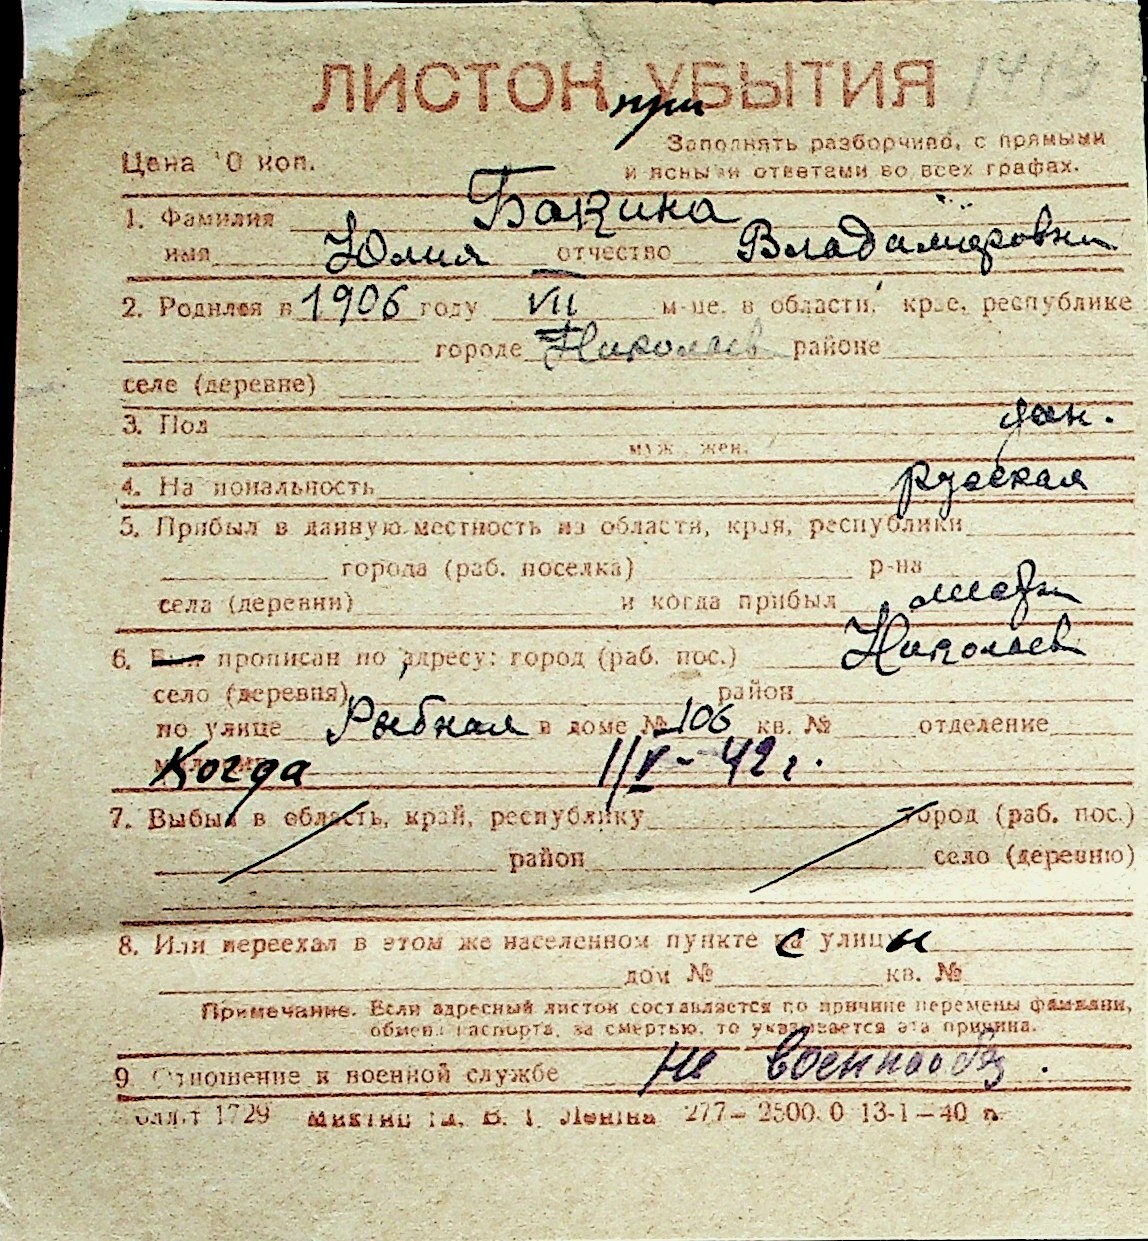 ЛИСТОК УБЫТИЯ 1419
при
Цена 10 коп. Заполнять разборчиво, с прямыми
и ясными ответами во всех графах.
1. Фамилия Бакина
имя Юлия отчество Владимировна
2. Родился в 1906 году VII м-це, в области, крае, республике
городе Николаев районе
селе (деревне)
3. Пол жен.
муж., жен.
4. Национальность русская
5. Прибыл в данную местность из области, края, республики
города (раб. поселка) р-на
села (деревни) и когда прибыл
6. Был прописан по адресу: город (раб. пос.) Николаев
село (деревня) район
по улице Рыбная в доме № 106 кв. № отделение
Когда 1/V-42 г.
7. Выбыл в область, край, республику город (раб. пос.)
район село (деревню)
8. Или переехал в этом же населенном пункте с улицы
дом № кв. №
Примечание. Если адресный листок составляется по причине перемены фамилии,
обмена паспорта, за смертью, то указывается эта причина.
9. Отношение к военной службе не военнообяз.
1729 Леніна 277–2500.0 13-1–40 п.